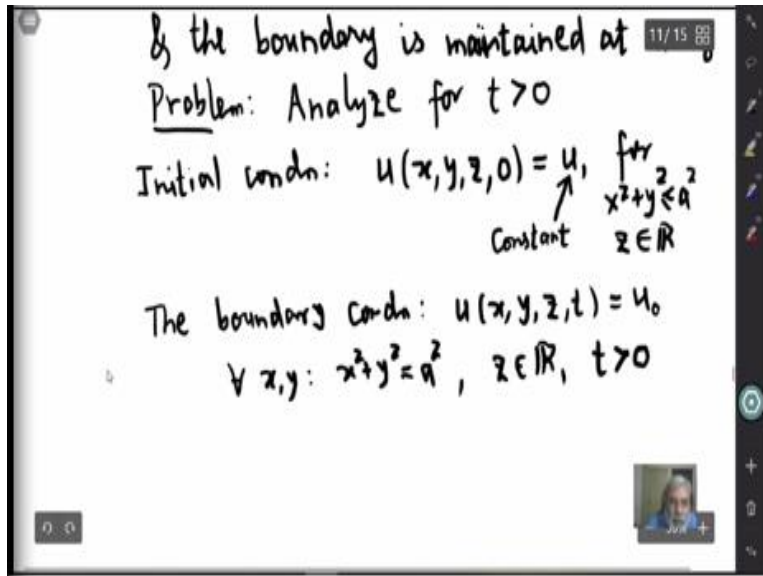 & the boundary is maintained at
11/15
Problem: Analyze for t>0
Initial condn: u(x,y,z,0) = u₁ for
x²+y²≤a²
Constant z∈ℝ
The boundary condn: u(x,y,z,t) = u₀
∀ x,y: x²+y²=a², z∈ℝ, t>0